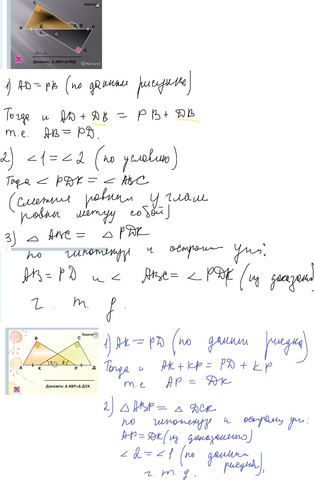 Задача
C
A
Д
B
P
Доказать: Δ ABC=Δ PKД
1) AD = PB (по данным рисунка)
Тогда и AD + DB = PB + DB
т.е. AB = PD.
2) <1 = <2 (по условию)
Тогда < PDK = < ABC
(смежные равным углам
равны между собой)
3) △ ABC = △ PDK
по гипотенузе и острому угл:
AB = PD и < ABC = < PDK (из доказан)
ч. т. д.
Задача
B
C
A
K
P
Д
Доказать: Δ ABP=Δ ДСК
1) AK = PD (по данным рисунка)
Тогда и AK + KP = PD + KP
т.е AP = DK
2) △ ABP = △ DCK
по гипотенузе и острому угл:
AP = DK (из доказанного)
<2 = <1 (по данным
рисунка).
ч. т. д.